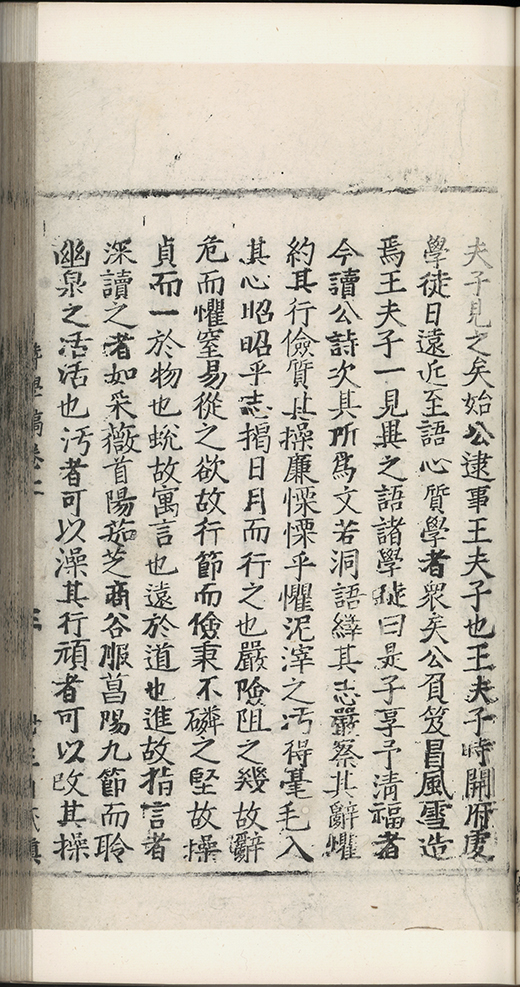 夫子見之矣始公逮事王夫子也王夫子時開府虔
學徒日遠近至語心質學者衆矣公負笈冒風雪造
焉王夫子一見異之語諸學徒曰是子享予淸福者
今讀公詩次其所爲文若洞語繹其志嚴察其辭懼
約其行儉質其操廉慄慄乎懼泥滓之汚得毫毛入
其心昭昭乎志揭日月而行之也嚴險阻之幾故辭
危而懼窒易從之欲故行節而儉秉不磷之堅故操
貞而一於物也蛻故寓言也遠於道也進故指言者
深讀之者如采薇首陽茹芝商谷服菖陽九節而聆
幽泉之活活也汚者可以澡其行頑者可以改其操
學稿卷二
三